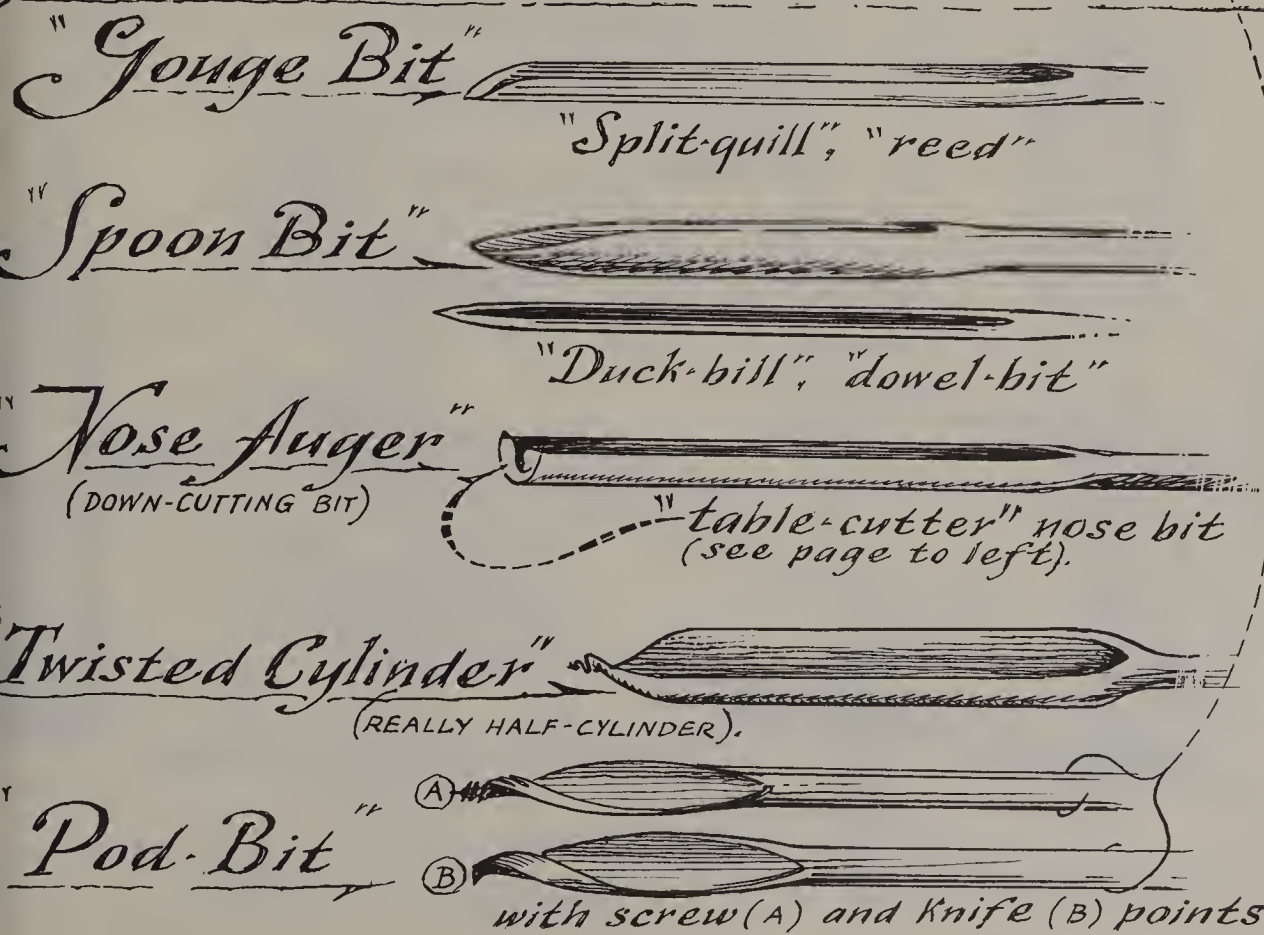 "Gouge Bit"
"Split-quill", "reed"
"Spoon Bit"
"Duck-bill", "dowel-bit"
"Nose Auger"
(DOWN-CUTTING BIT)
"table-cutter" nose bit
(see page to left).
"Twisted Cylinder"
(REALLY HALF-CYLINDER).
A
"Pod-Bit"
B
with screw (A) and Knife (B) points